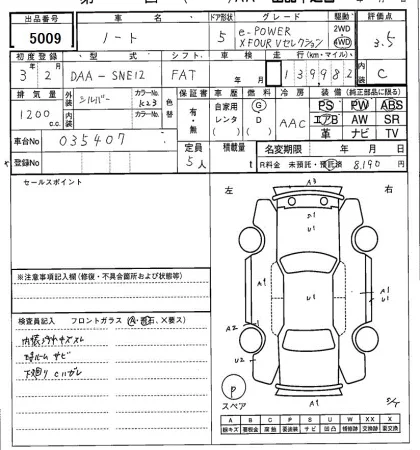 出品番号 車名 ドア形状 グレード 駆動 評価点
5009 ノート 5 e-POWER X FOUR Vセレクション 2WD 4WD 3.5
初度登録 型式 シフト 車検 走行(km・マイル) 内装
3年2月 DAA-SNE12 FAT 年 月 13,982 C
排気量 外装 シルバー カラーNo K23 色替 保証書 車歴 燃料 冷房 装備(純正部品に限る)
1200c.c. 内装 カラーNo 有・無 自家用 レンタ G D AAC PS PW ABS
エアB AW SR
革 ナビ TV
車台No 035407
登録No 定員 5人 積載量 t 名変期限 年 月 日
R料金 未預託・預託済 8,190円
セールスポイント
左 右
A3
U1
U1
A1
A1
A1
A2
U2
A1
P
スペア
S/T
※注意事項記入欄(修復・不具合箇所および状態等)
検査員記入 フロントガラス(A・飛石、X要ス)
下廻り
A B C P S U W X XX X
線キズ 要板金 腐触 要塗装 サビ 凹凸 補修跡 交換跡 要交換